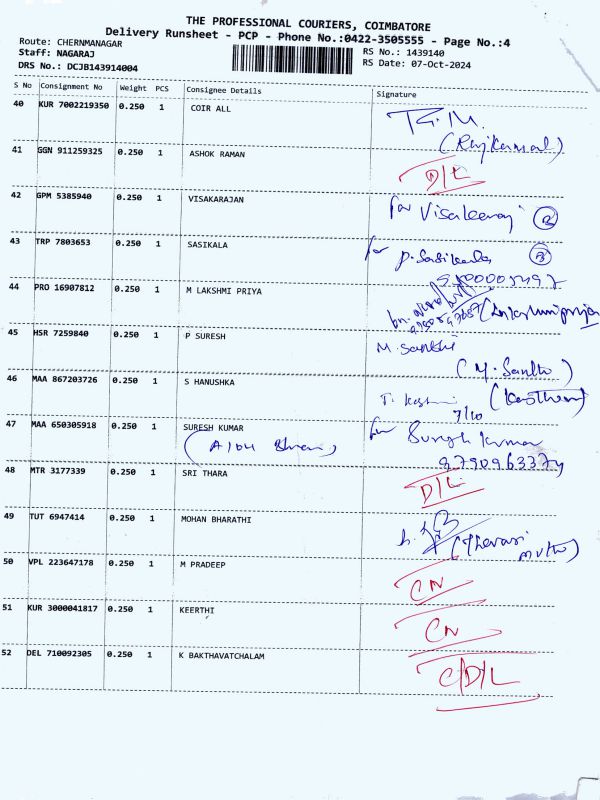 THE PROFESSIONAL COURIERS, COIMBATORE
Delivery Runsheet - PCP - Phone No.:0422-3505555 - Page No.:4
Route: CHERNMANAGAR
Staff: NAGARAJ
DRS No.: DCJB143914004
RS No.: 1439140
RS Date: 07-Oct-2024
S No Consignment No Weight PCS Consignee Details Signature
40 KUR 7002219350 0.250 1 COIR ALL
(Rajkamal)
41 GGN 911259325 0.250 1 ASHOK RAMAN D/L
42 GPM 5385940 0.250 1 VISAKARAJAN for
43 TRP 7803653 0.250 1 SASIKALA for P. Sasikala
44 PRO 16907812 0.250 1 M LAKSHMI PRIYA
45 HSR 7259840 0.250 1 P SURESH M. Santhi
46 MAA 867203726 0.250 1 S HANUSHKA
7/10
47 MAA 650305918 0.250 1 SURESH KUMAR for Suresh Kumar
48 MTR 3177339 0.250 1 SRI THARA D/L
49 TUT 6947414 0.250 1 MOHAN BHARATHI
50 VPL 223647178 0.250 1 M PRADEEP CN
51 KUR 3000041817 0.250 1 KEERTHI CN
52 DEL 710092305 0.250 1 K BAKTHAVATCHALAM C/D/L